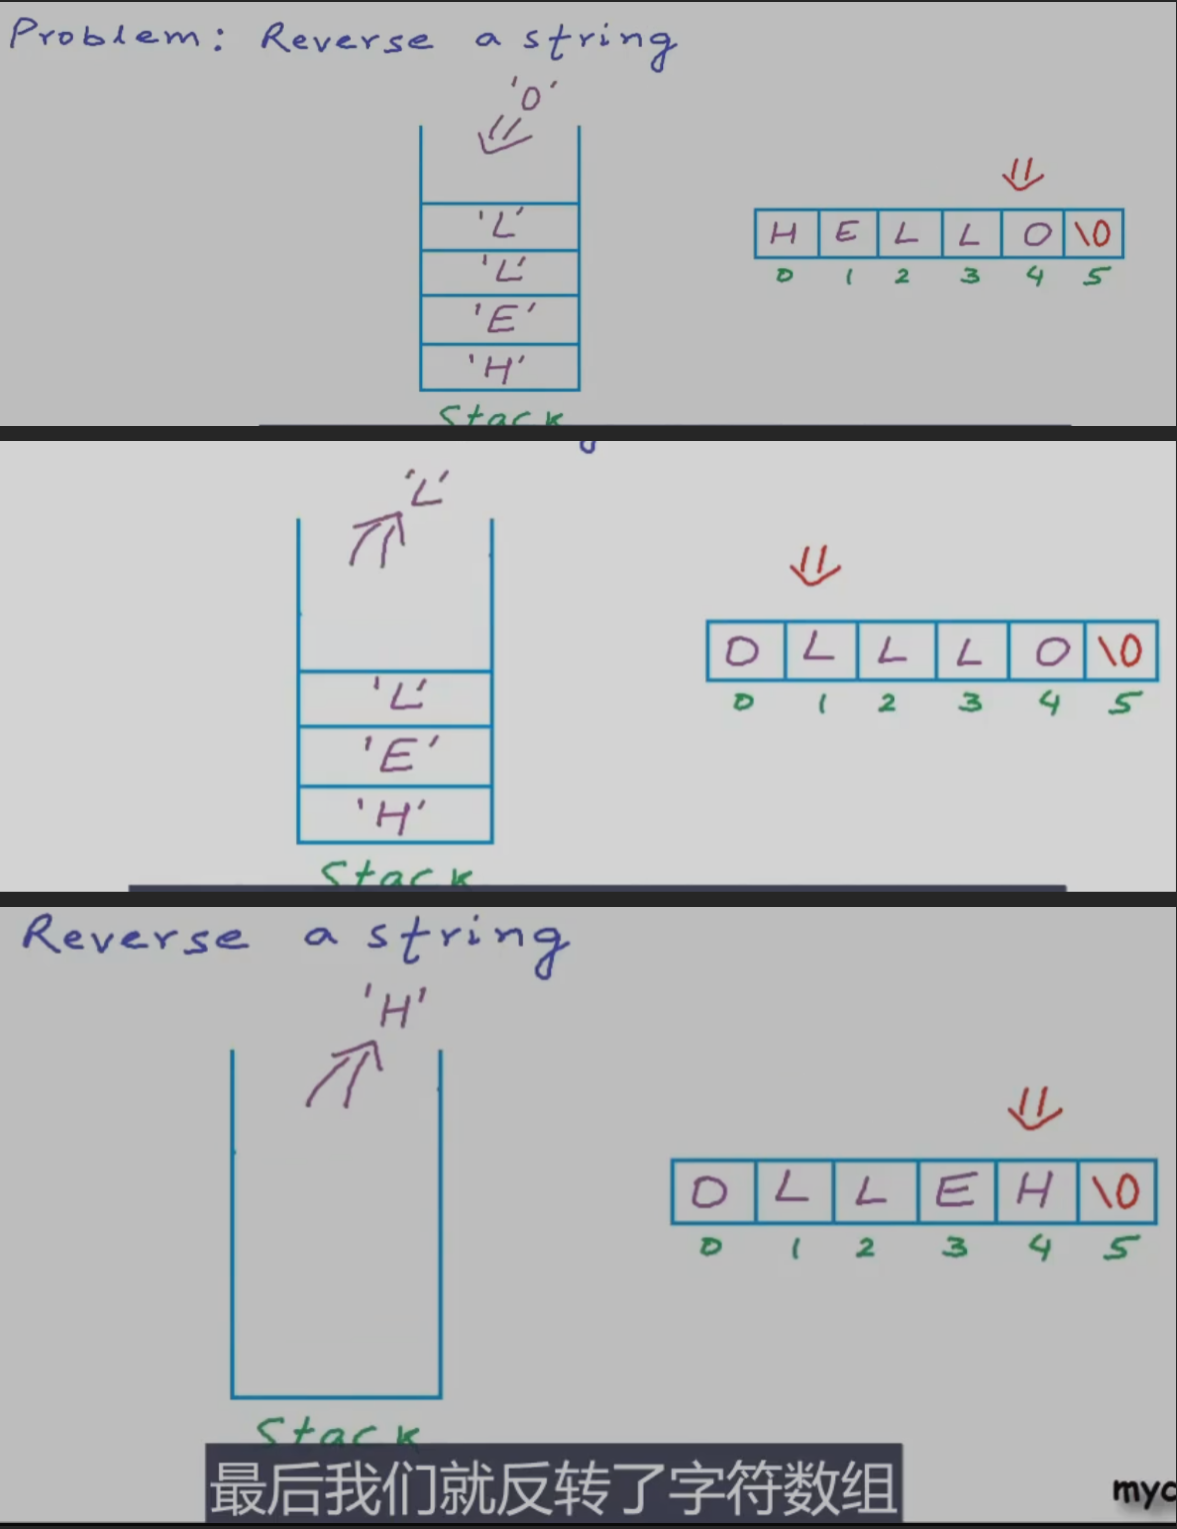 Problem: Reverse a string
'O'
'L'
'L'
'E'
'H'
Stack
H E L L O \0
0 1 2 3 4 5
'L'
'L'
'E'
'H'
Stack
O L L L O \0
0 1 2 3 4 5
Reverse a string
'H'
O L L E H \0
0 1 2 3 4 5
Stack
最后我们就反转了字符数组